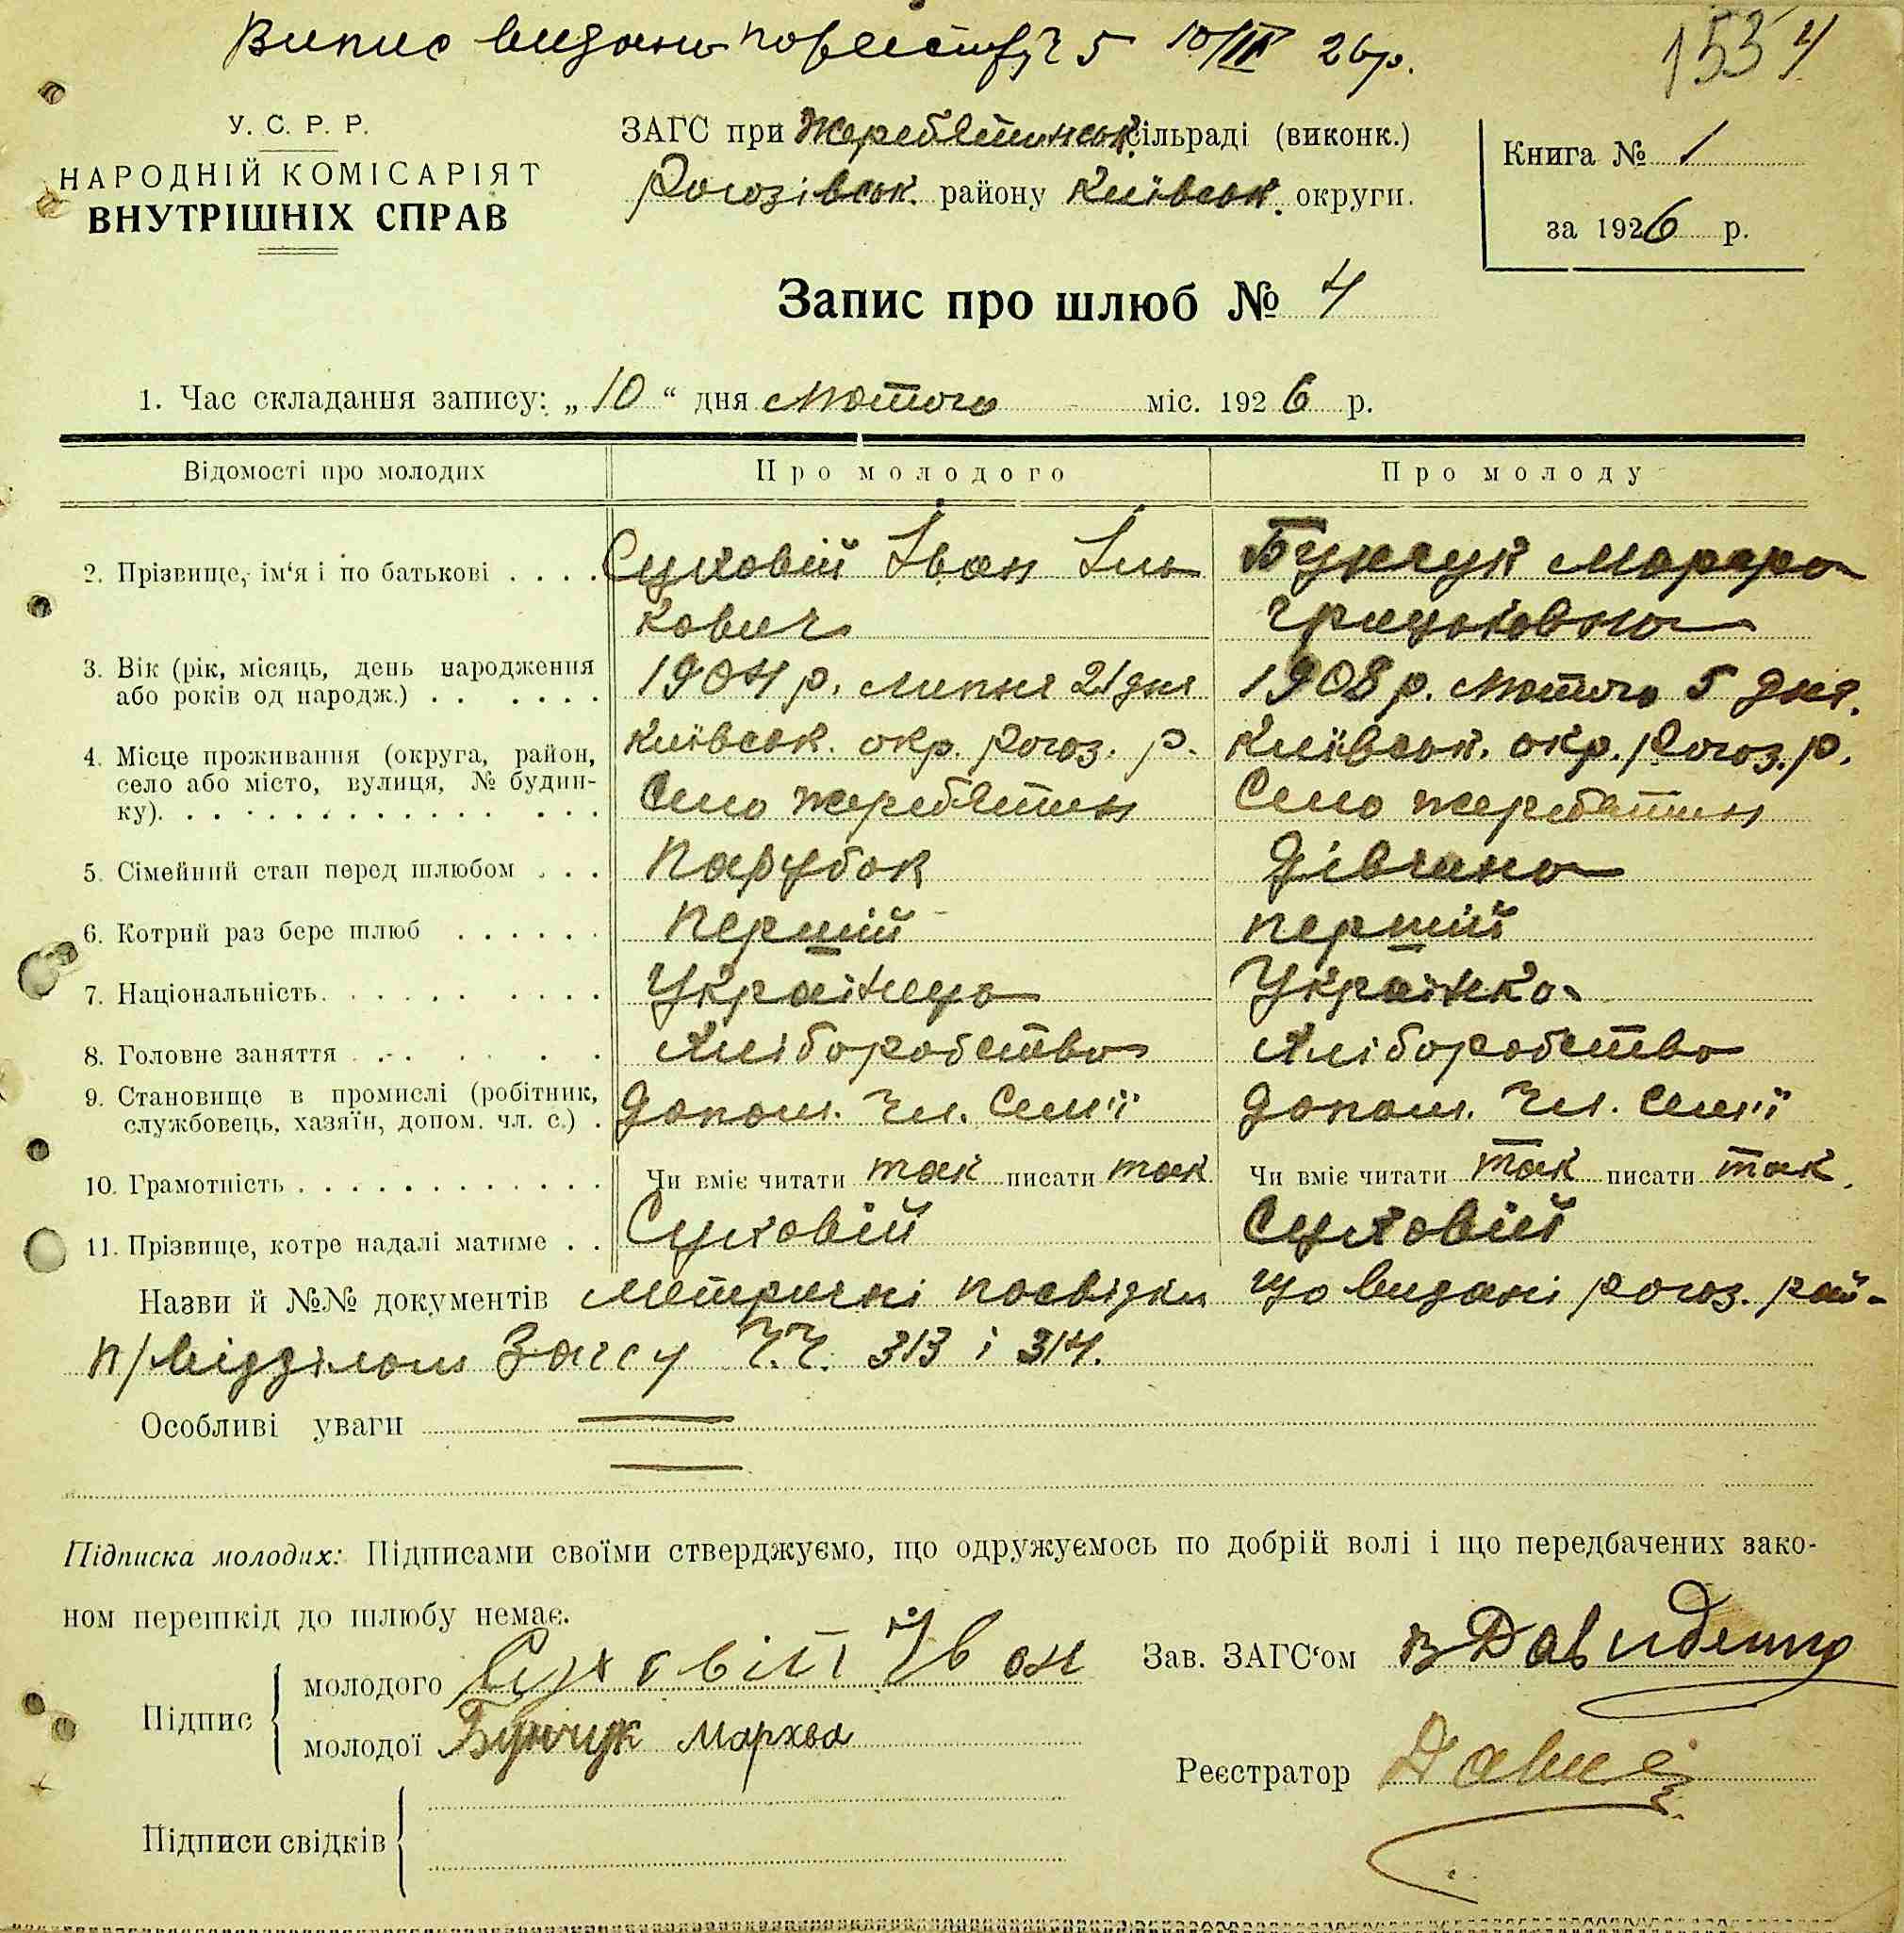 Випис видано по реєстру Ч 5 10/II 26 р.
153 4
У. С. Р. Р.
НАРОДНІЙ КОМІСАРІЯТ
ВНУТРІШНІХ СПРАВ
ЗАГС при Жеребятинськ. сільраді (виконк.)
Рогозівськ. району Київськ. округи.
Книга № 1
за 1926 р.
Запис про шлюб № 4
1. Час складання запису: „10“ дня лютого міс. 1926 р.
Відомості про молодих Про молодого Про молоду
2. Прізвище, ім‘я і по батькові . . . . Суховій Іван Іль Бунчук Марфа
кович Грицьковна
3. Вік (рік, місяць, день народження 1904 р. липня 21 дня 1908 р. лютого 5 дня.
або років од народж.) . . . . . .
4. Місце проживання (округа, район, Київськ. окр. Рогоз. р. Київськ. окр. Рогоз. р.
село або місто, вулиця, № будин- Село Жеребятин Село Жеребятин
ку). . . . . . . . . . . . . . . .
5. Сімейний стан перед шлюбом . . . Парубок Дівчина
6. Котрий раз бере шлюб . . . . . . Перший перший
7. Національність. . . . . . . . . . Українець Українка
8. Головне заняття . . . . . . . Хліборобство Хліборобство
9. Становище в промислі (робітник, допом. чл. семії допом. чл. семії
службовець, хазяїн, допом. чл. с.) .
10. Грамотність . . . . . . . . . . . . Чи вміє читати так писати так Чи вміє читати так писати так.
11. Прізвище, котре надалі матиме . . Суховій Суховій
Назви й №№ документів Метричні посвідки що видані Рогоз. рай-
п/відділом Загсу Ч.Ч. 313 і 314.
Особливі уваги
Підписка молодих: Підписами своїми стверджуємо, що одружуємось по добрій волі і що передбачених зако-
ном перешкід до шлюбу немає.
Підпис
молодого Суховій Іван
молодої Бунчук Мархва
Зав. ЗАГС‘ом В Давиденко
Реєстратор
Підписи свідків